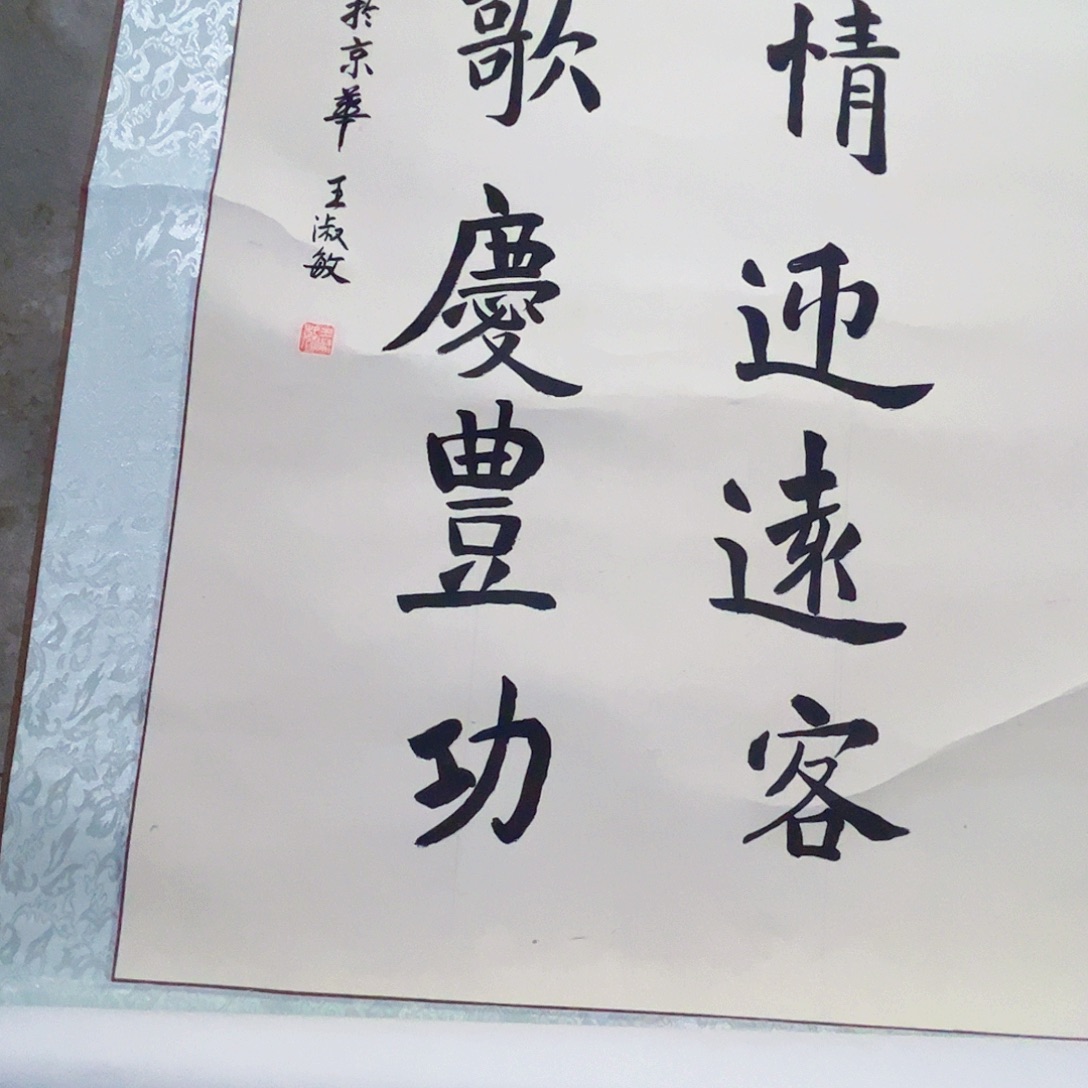 情迎遠客
歌慶豊功
於京華 王淑敏